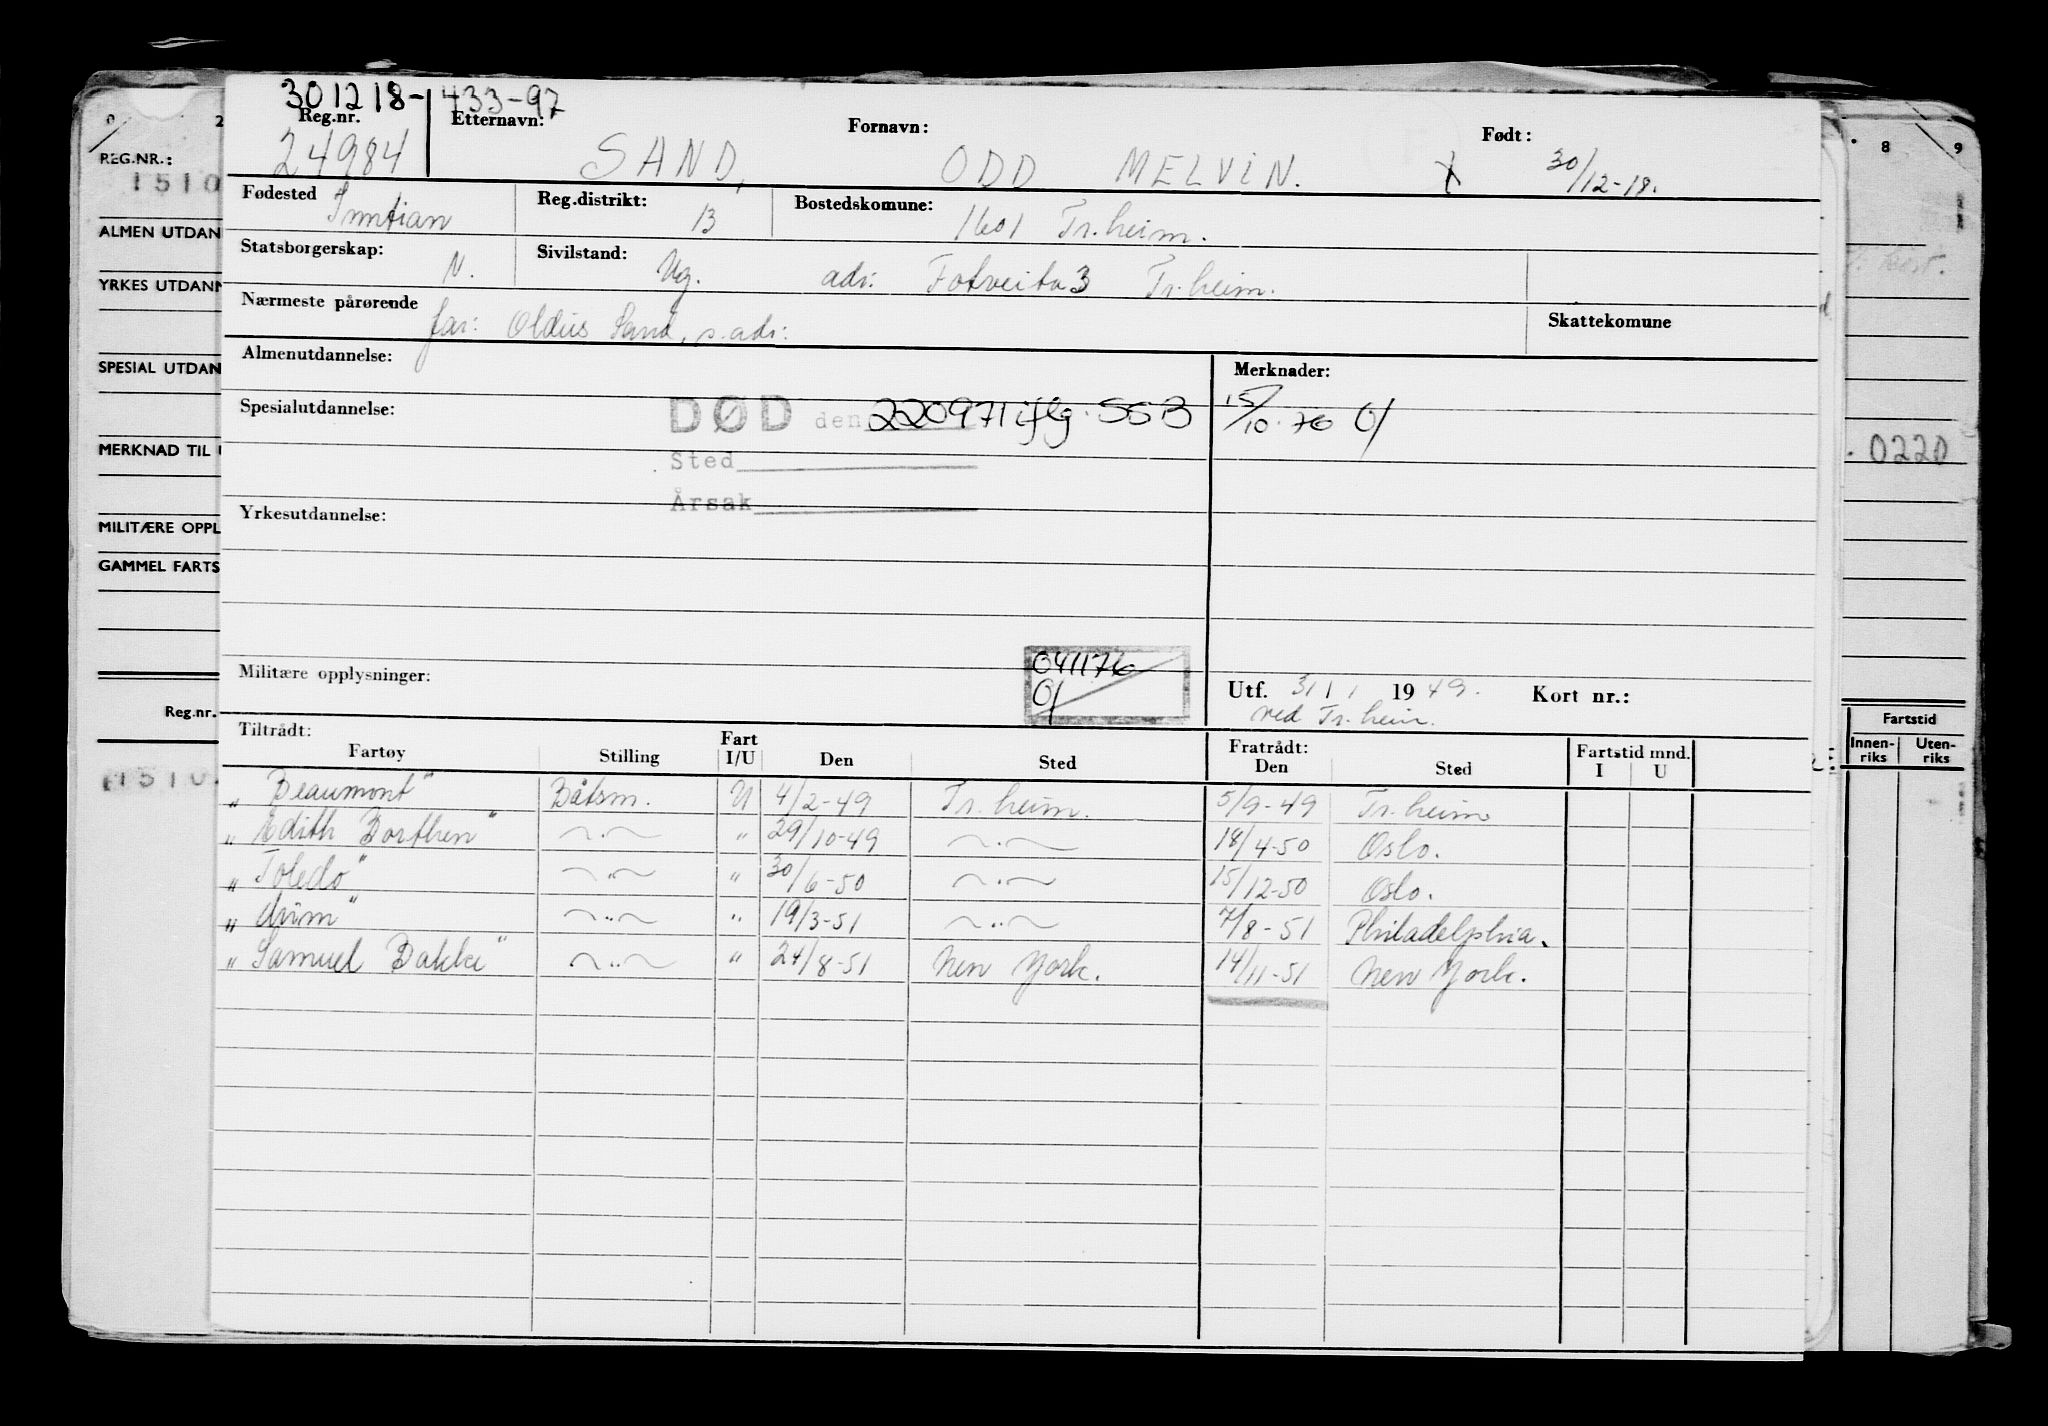 301218-433-97
Reg.nr. Etternavn: Fornavn: Født:
24984 SAND, ODD MELVIN. 30/12-18.
Fødested Inntian Reg.distrikt: 13 Bostedskomune: 1601 Tr.heim.
Statsborgerskap: N. Sivilstand: Ug. adr: Fotveita 3 Tr.heim.
Nærmeste pårørende far: Oldus Sand, s. adr: Skattekomune
Almenutdannelse: Merknader:
Spesialutdannelse: DØD den 220971 iflg. SSB 15/10-76 O/
Sted
Årsak
Yrkesutdannelse:
041176
O/
Militære opplysninger: Utf. 31/1 1949. Kort nr.:
ved Tr.heim.
Tiltrådt: Fratrådt:
Fartøy Stilling Fart I/U Den Sted Den Sted Fartstid mnd. I U
"Beaumont" Båtsm. U 4/2-49 Tr.heim. 5/9-49 Tr.heim
"Edith Borthen" ~.~ " 29/10-49 ~.~ 18/4-50 Oslo.
"Toledo" ~..~ " 30/6-50 ~..~ 15/12-50 Oslo.
~..~ " 19/3-51 ~..~ 7/8-51 Philadelphia.
"Samuel Bakke" ~..~ " 24/8-51 New York. 14/11-51 New York.
0 2
REG.NR.:
1510
ALMEN UTDAN
YRKES UTDANN
SPESIAL UTDAN
MERKNAD TIL
MILITÆRE OPPL
GAMMEL FARTS
Reg.nr.
1510.
8 9
0220
Fartstid
Innen-riks Uten-riks